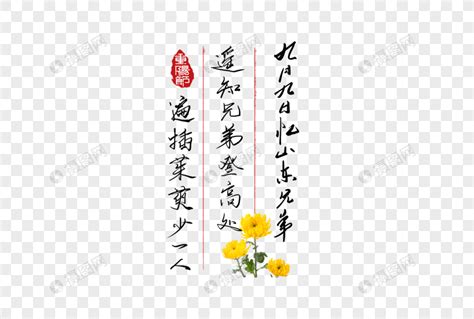 九月九日忆山东兄弟
遥知兄弟登高处
重陽節
遍插茱萸少一人